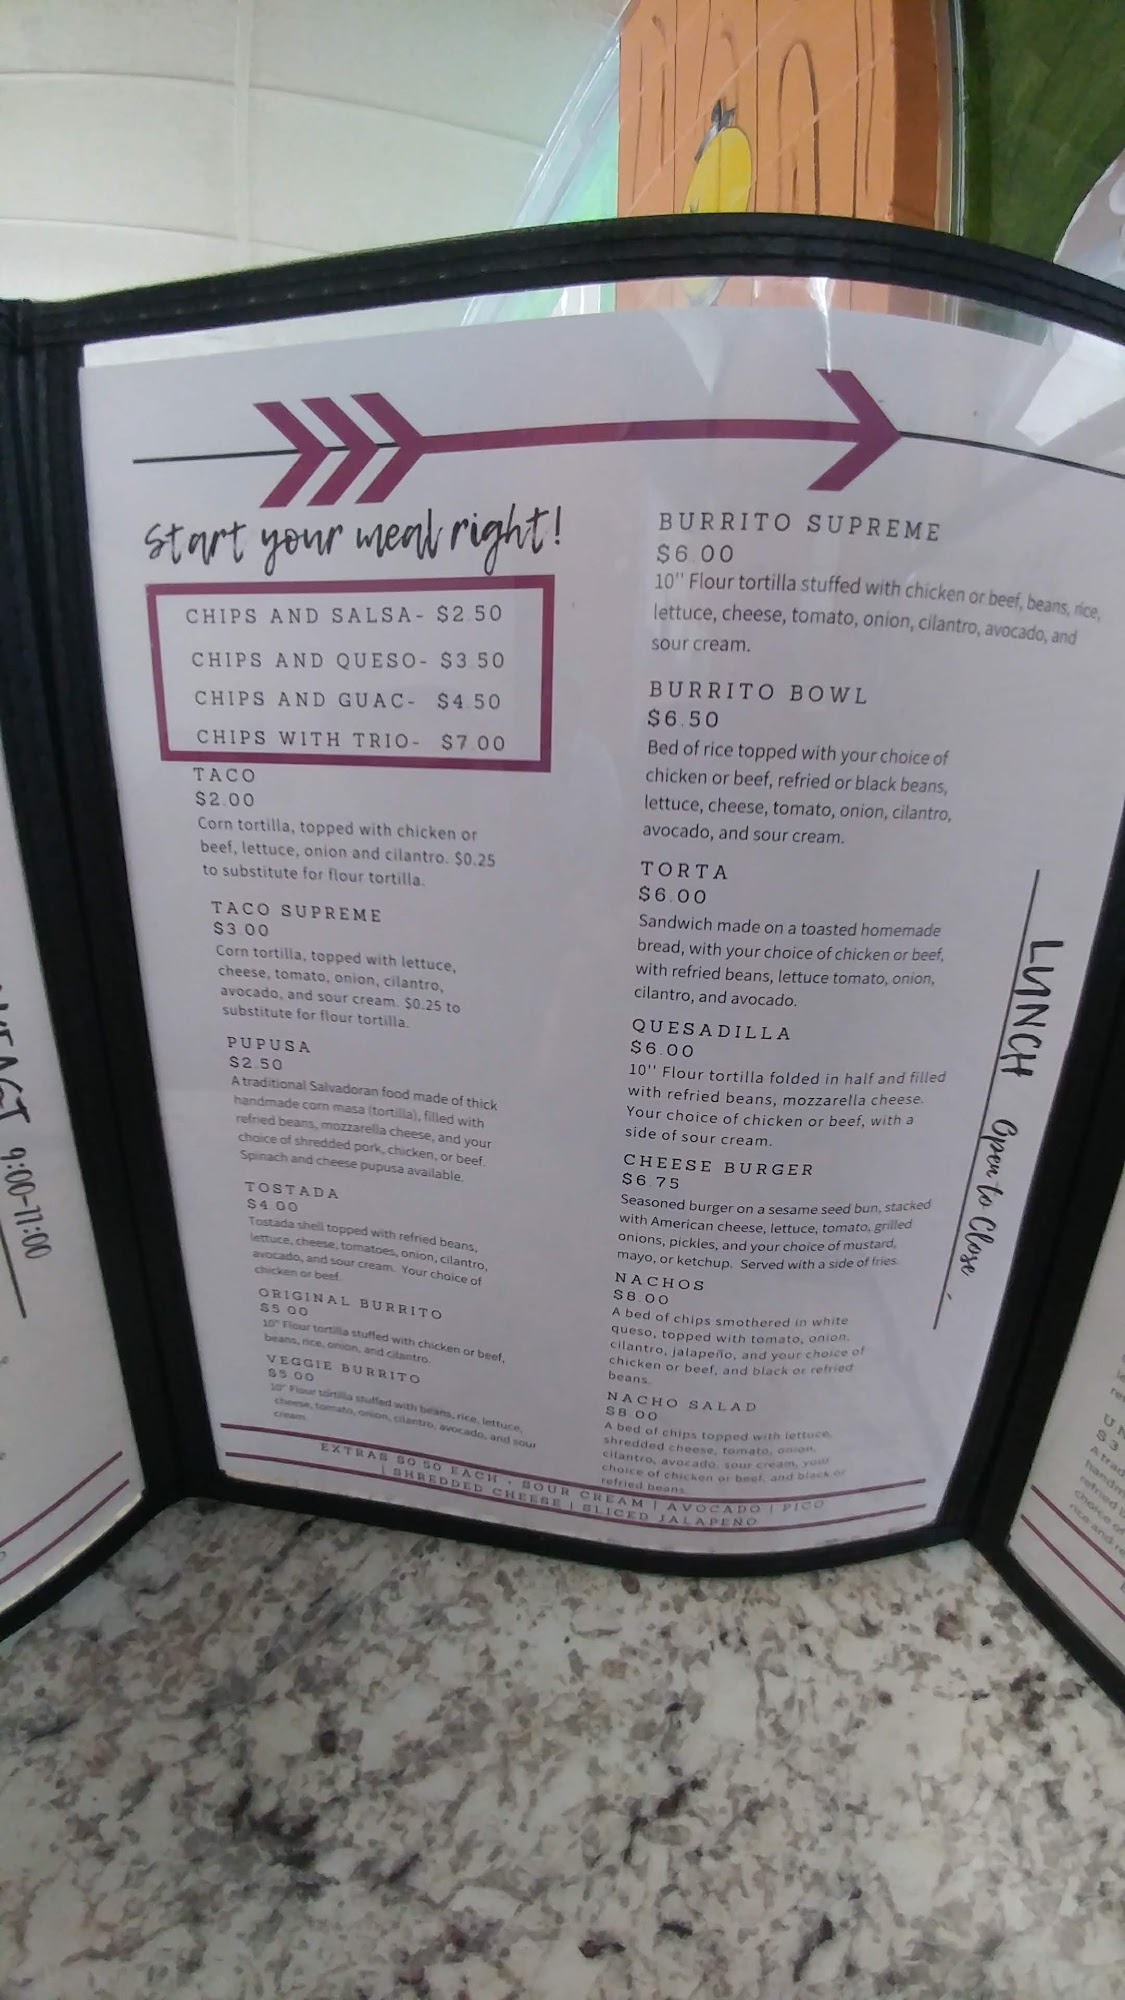 Start your meal right!
CHIPS AND SALSA- $2.50
CHIPS AND QUESO- $3.50
CHIPS AND GUAC- $4.50
CHIPS WITH TRIO- $7.00
TACO
$2.00
Corn tortilla, topped with chicken or
beef, lettuce, onion and cilantro. $0.25
to substitute for flour tortilla.
TACO SUPREME
$3.00
Corn tortilla, topped with lettuce,
cheese, tomato, onion, cilantro,
avocado, and sour cream. $0.25 to
substitute for flour tortilla.
PUPUSA
$2.50
A traditional Salvadoran food made of thick
handmade corn masa (tortilla), filled with
refried beans, mozzarella cheese, and your
choice of shredded pork, chicken, or beef.
Spinach and cheese pupusa available.
TOSTADA
$4.00
Tostada shell topped with refried beans,
lettuce, cheese, tomatoes, onion, cilantro,
avocado, and sour cream. Your choice of
chicken or beef.
ORIGINAL BURRITO
$5.00
10" Flour tortilla stuffed with chicken or beef,
beans, rice, onion, and cilantro.
VEGGIE BURRITO
$5.00
10" Flour tortilla stuffed with beans, rice, lettuce,
cheese, tomato, onion, cilantro, avocado, and sour
cream.
BURRITO SUPREME
$6.00
10" Flour tortilla stuffed with chicken or beef, beans, rice,
lettuce, cheese, tomato, onion, cilantro, avocado, and
sour cream.
BURRITO BOWL
$6.50
Bed of rice topped with your choice of
chicken or beef, refried or black beans,
lettuce, cheese, tomato, onion, cilantro,
avocado, and sour cream.
TORTA
$6.00
Sandwich made on a toasted homemade
bread, with your choice of chicken or beef,
with refried beans, lettuce tomato, onion,
cilantro, and avocado.
QUESADILLA
$6.00
10" Flour tortilla folded in half and filled
with refried beans, mozzarella cheese.
Your choice of chicken or beef, with a
side of sour cream.
CHEESE BURGER
$6.75
Seasoned burger on a sesame seed bun, stacked
with American cheese, lettuce, tomato, grilled
onions, pickles, and your choice of mustard,
mayo, or ketchup. Served with a side of fries.
NACHOS
$8.00
A bed of chips smothered in white
queso, topped with tomato, onion,
cilantro, jalapeño, and your choice of
chicken or beef, and black or refried
beans.
NACHO SALAD
$8.00
A bed of chips topped with lettuce,
shredded cheese, tomato, onion,
cilantro, avocado, sour cream, your
choice of chicken or beef, and black or
refried beans.
EXTRAS $0.50 EACH - SOUR CREAM | AVOCADO | PICO
| SHREDDED CHEESE | SLICED JALAPENO
LUNCH Open to Close
9:00-11:00